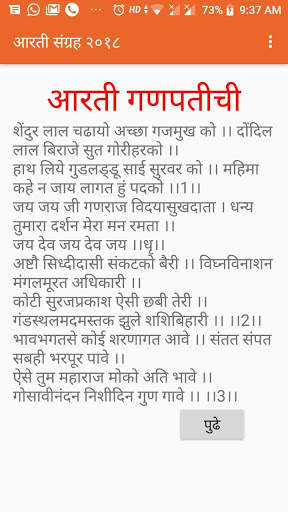 HD 73% 9:37 AM
आरती संग्रह २०१८
आरती गणपतीची
शेंदुर लाल चढायो अच्छा गजमुख को ।। दोंदिल
लाल बिराजे सुत गोरीहरको ।।
हाथ लिये गुडलड्डू साई सुरवर को ।। महिमा
कहे न जाय लागत हुं पदको ।।1।।
जय जय जी गणराज विदयासुखदाता । धन्य
तुमारा दर्शन मेरा मन रमता ।।
जय देव जय देव जय ।।धृ।।
अष्टी सिध्दीदासी संकटको बैरी ।। विघ्नविनाशन
मंगलमूरत अधिकारी ।।
कोटी सुरजप्रकाश ऐसी छबी तेरी ।।
गंडस्थलमदमस्तक झुले शशिबिहारी ।। ।।2।।
भावभगतसे कोई शरणागत आवे ।। संतत संपत
सबही भरपूर पावे ।।
ऐसे तुम महाराज मोको अति भावे ।।
गोसावीनंदन निशीदिन गुण गावे ।। ।।3।।
पुढे